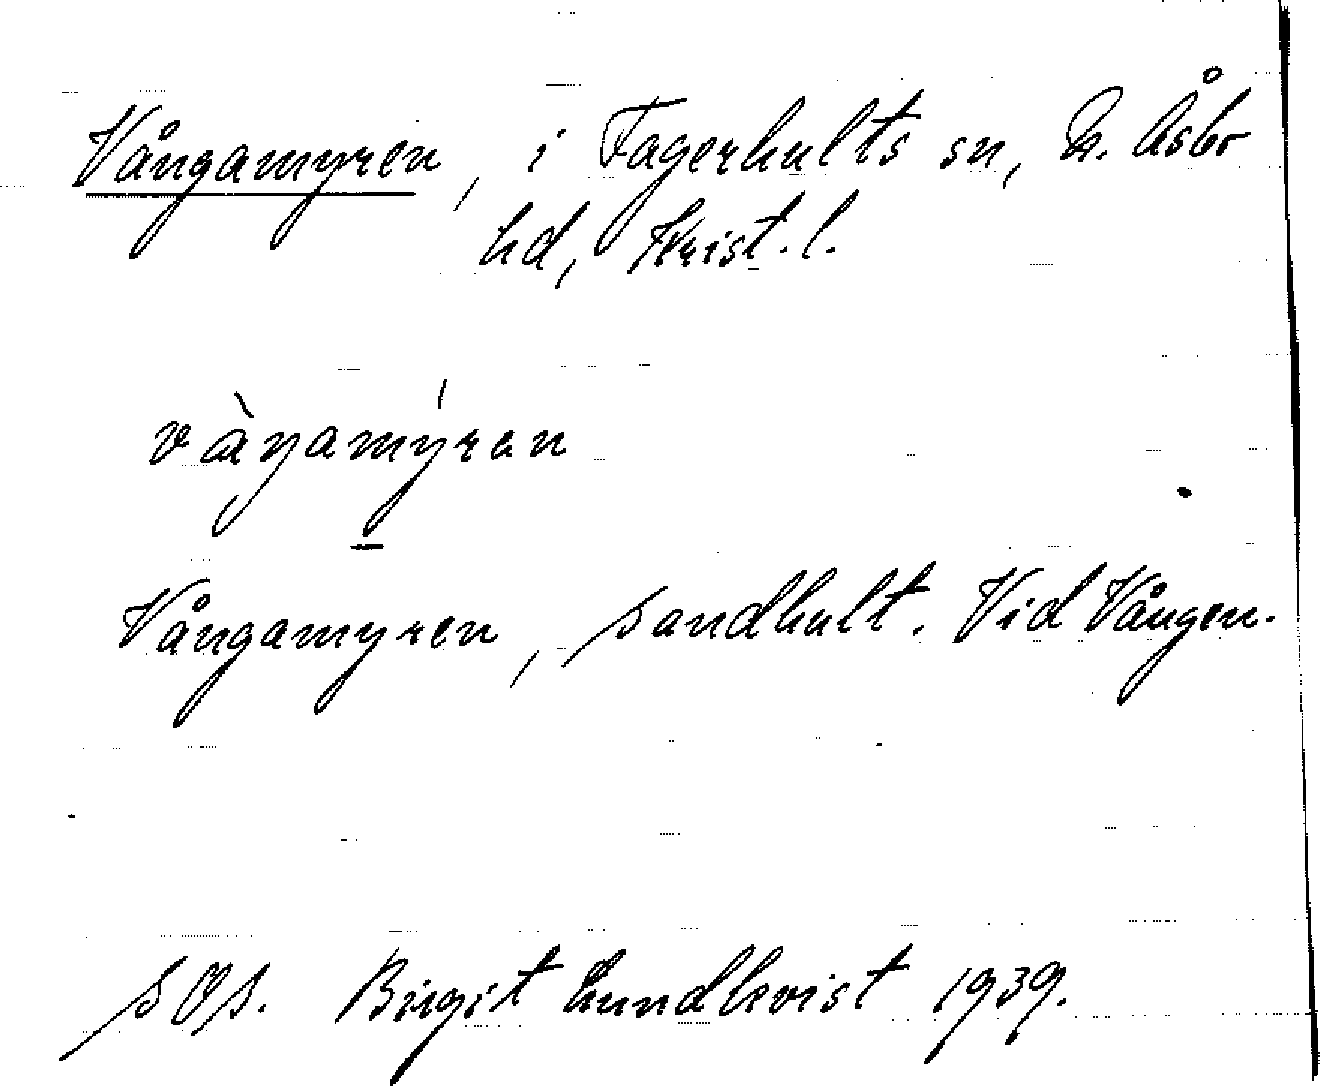 Vångamyren, i Fagerhults sn, N. Åsbo
hd, Krist. l.
vàŋamýrən
Vångamyren, Sandhult. Vid Vången.
SOS. Birgit Lundkvist 1939.